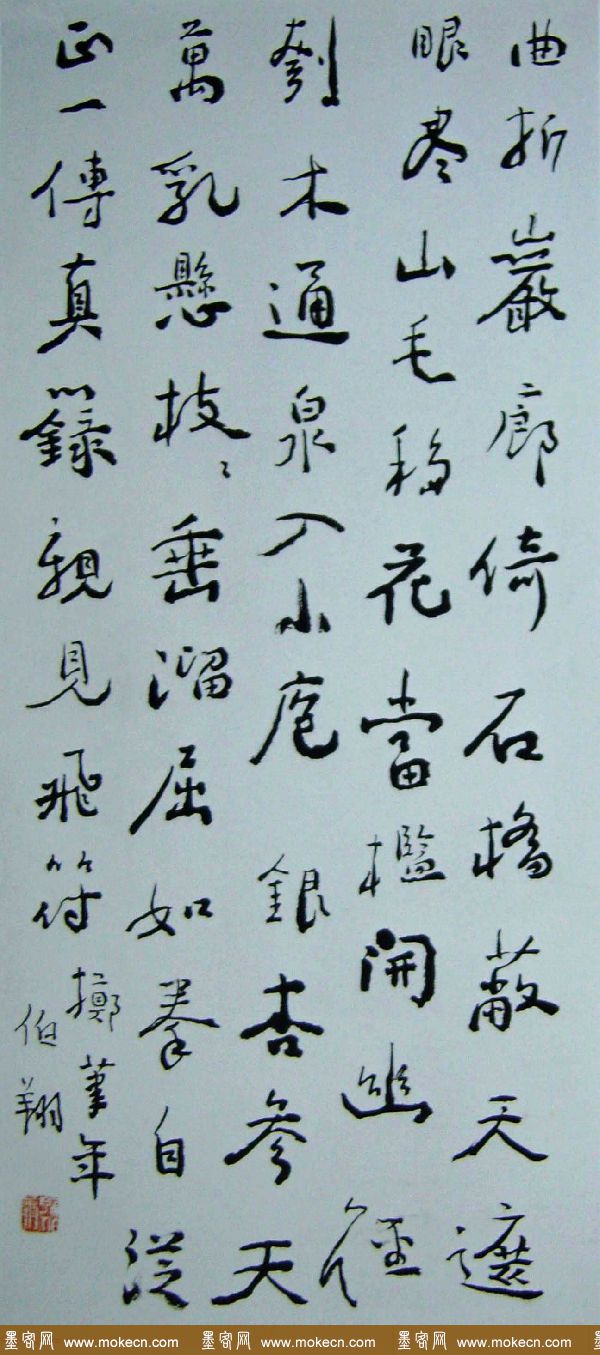 曲折巖廊倚石橋蔽天遮
眼盡山毛移花當檻開幽徑
刳木通泉入小庖銀杏參天
萬乳懸枝〻垂溜屈如拳自從
正一傳真籙親見飛符擲筆年
伯翔
墨客网 www.mokecn.com 墨客网 www.mokecn.com 墨客网 www.mokecn.com